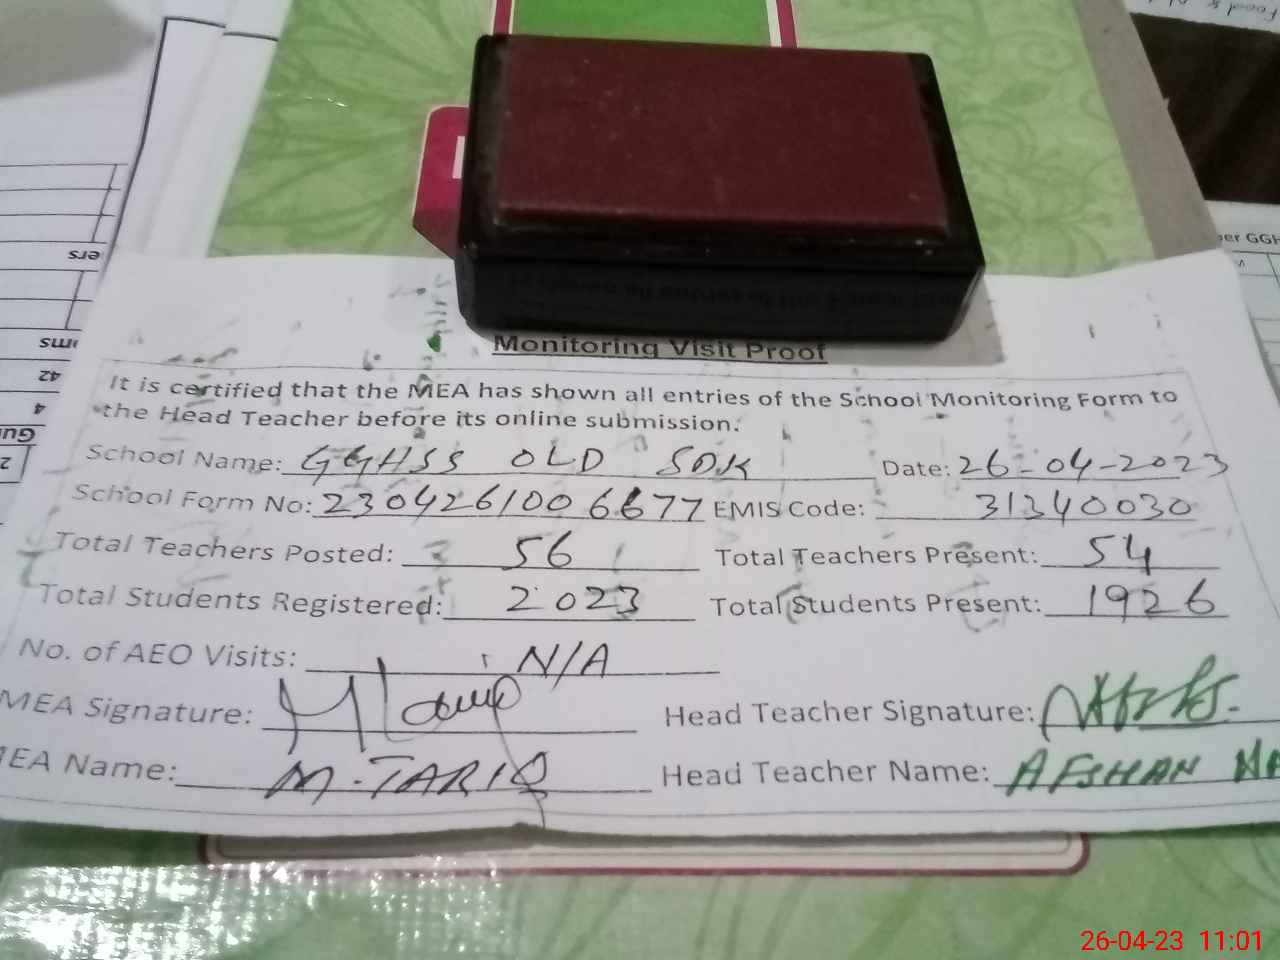 Monitoring Visit Proof
It is certified that the MEA has shown all entries of the School Monitoring Form to
the Head Teacher before its online submission.
School Name: GGHSS OLD SDK Date: 26-04-2023
School Form No: 2304261006677 EMIS Code: 31340030
Total Teachers Posted: 56 Total Teachers Present: 54
Total Students Registered: 2023 Total Students Present: 1926
No. of AEO Visits: N/A
MEA Signature: Head Teacher Signature:
MEA Name: M.TARIQ Head Teacher Name: AFSHAN
26-04-23 11:01